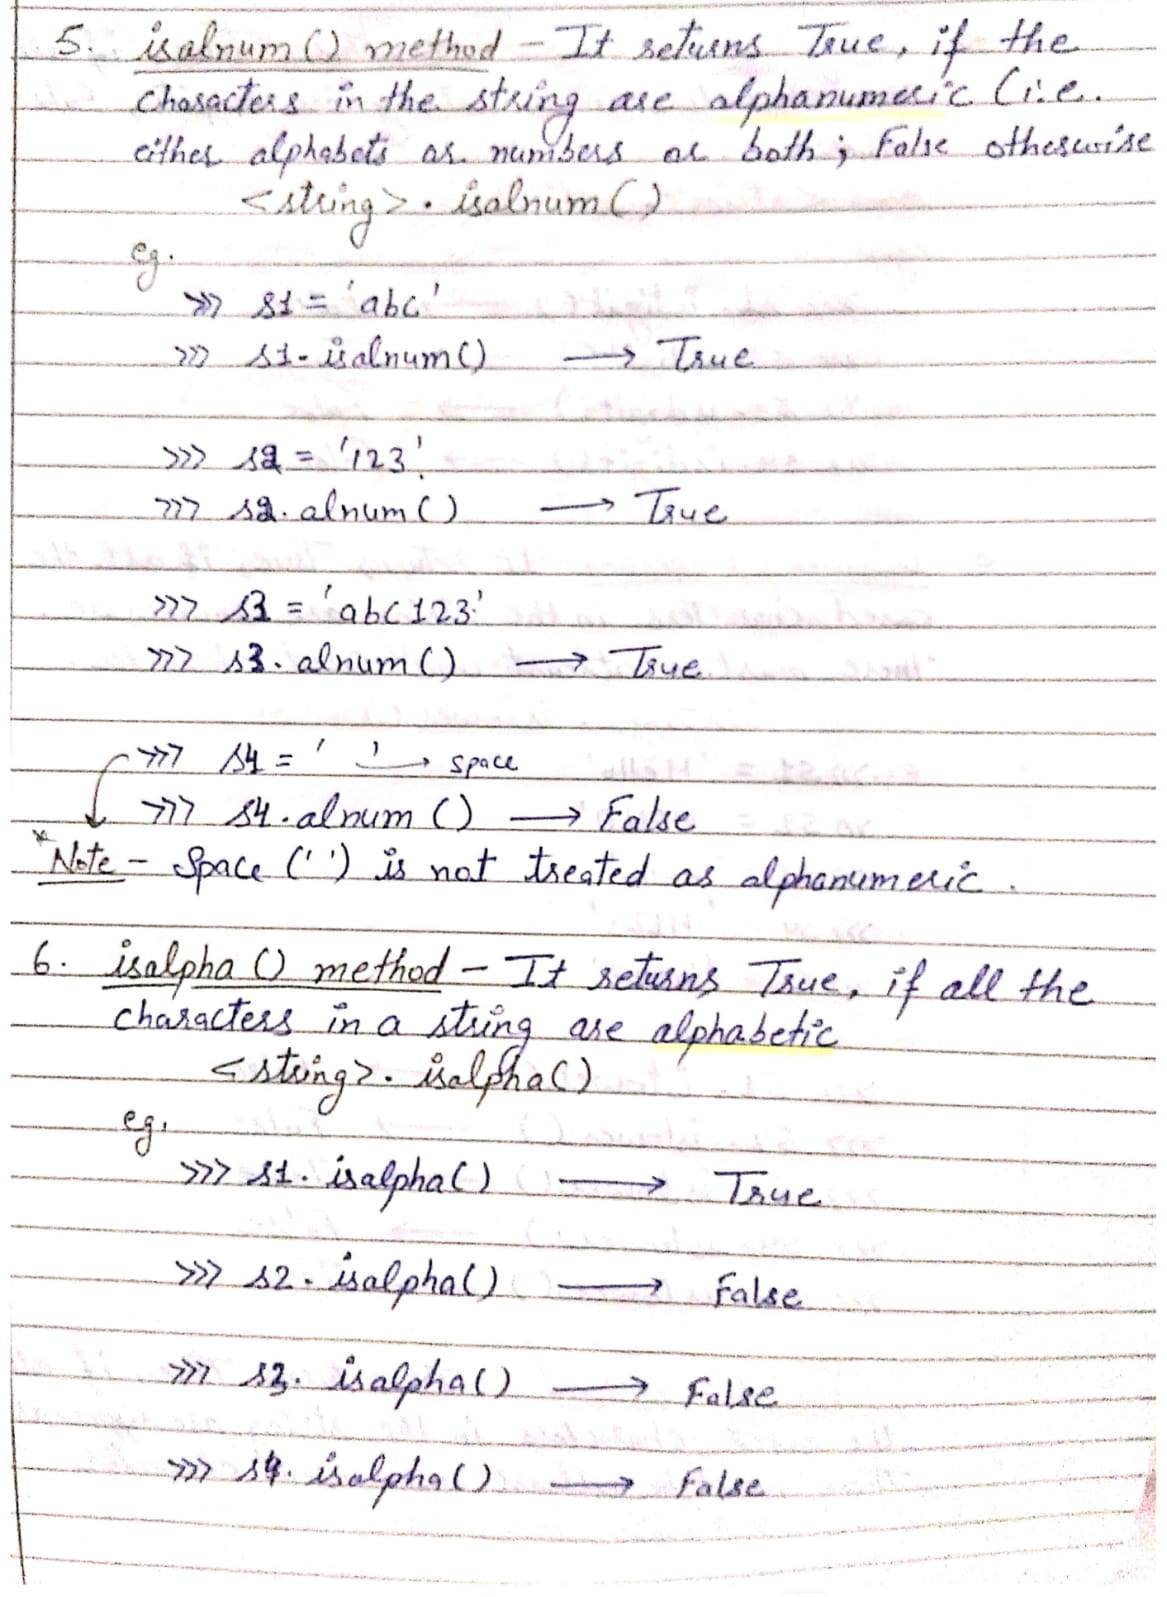 5. isalnum() method - It returns True, if the
characters in the string are alphanumeric (i.e.
either alphabets or numbers or both; False otherwise
<string>. isalnum()
eg.
>>> s1 = 'abc'
>>> s1. isalnum() → True
>>> s2 = '123'
>>> s2. alnum() → True
>>> s3 = 'abc123'
>>> s3. alnum() → True
>>> s4 = ' ' → space
>>> s4. alnum() → False
*Note - Space (' ') is not treated as alphanumeric.
6. isalpha() method - It returns True, if all the
characters in a string are alphabetic
<string>. isalpha()
eg.
>>> s1. isalpha() → True
>>> s2. isalpha() → False
>>> s3. isalpha() → False
>>> s4. isalpha() → False